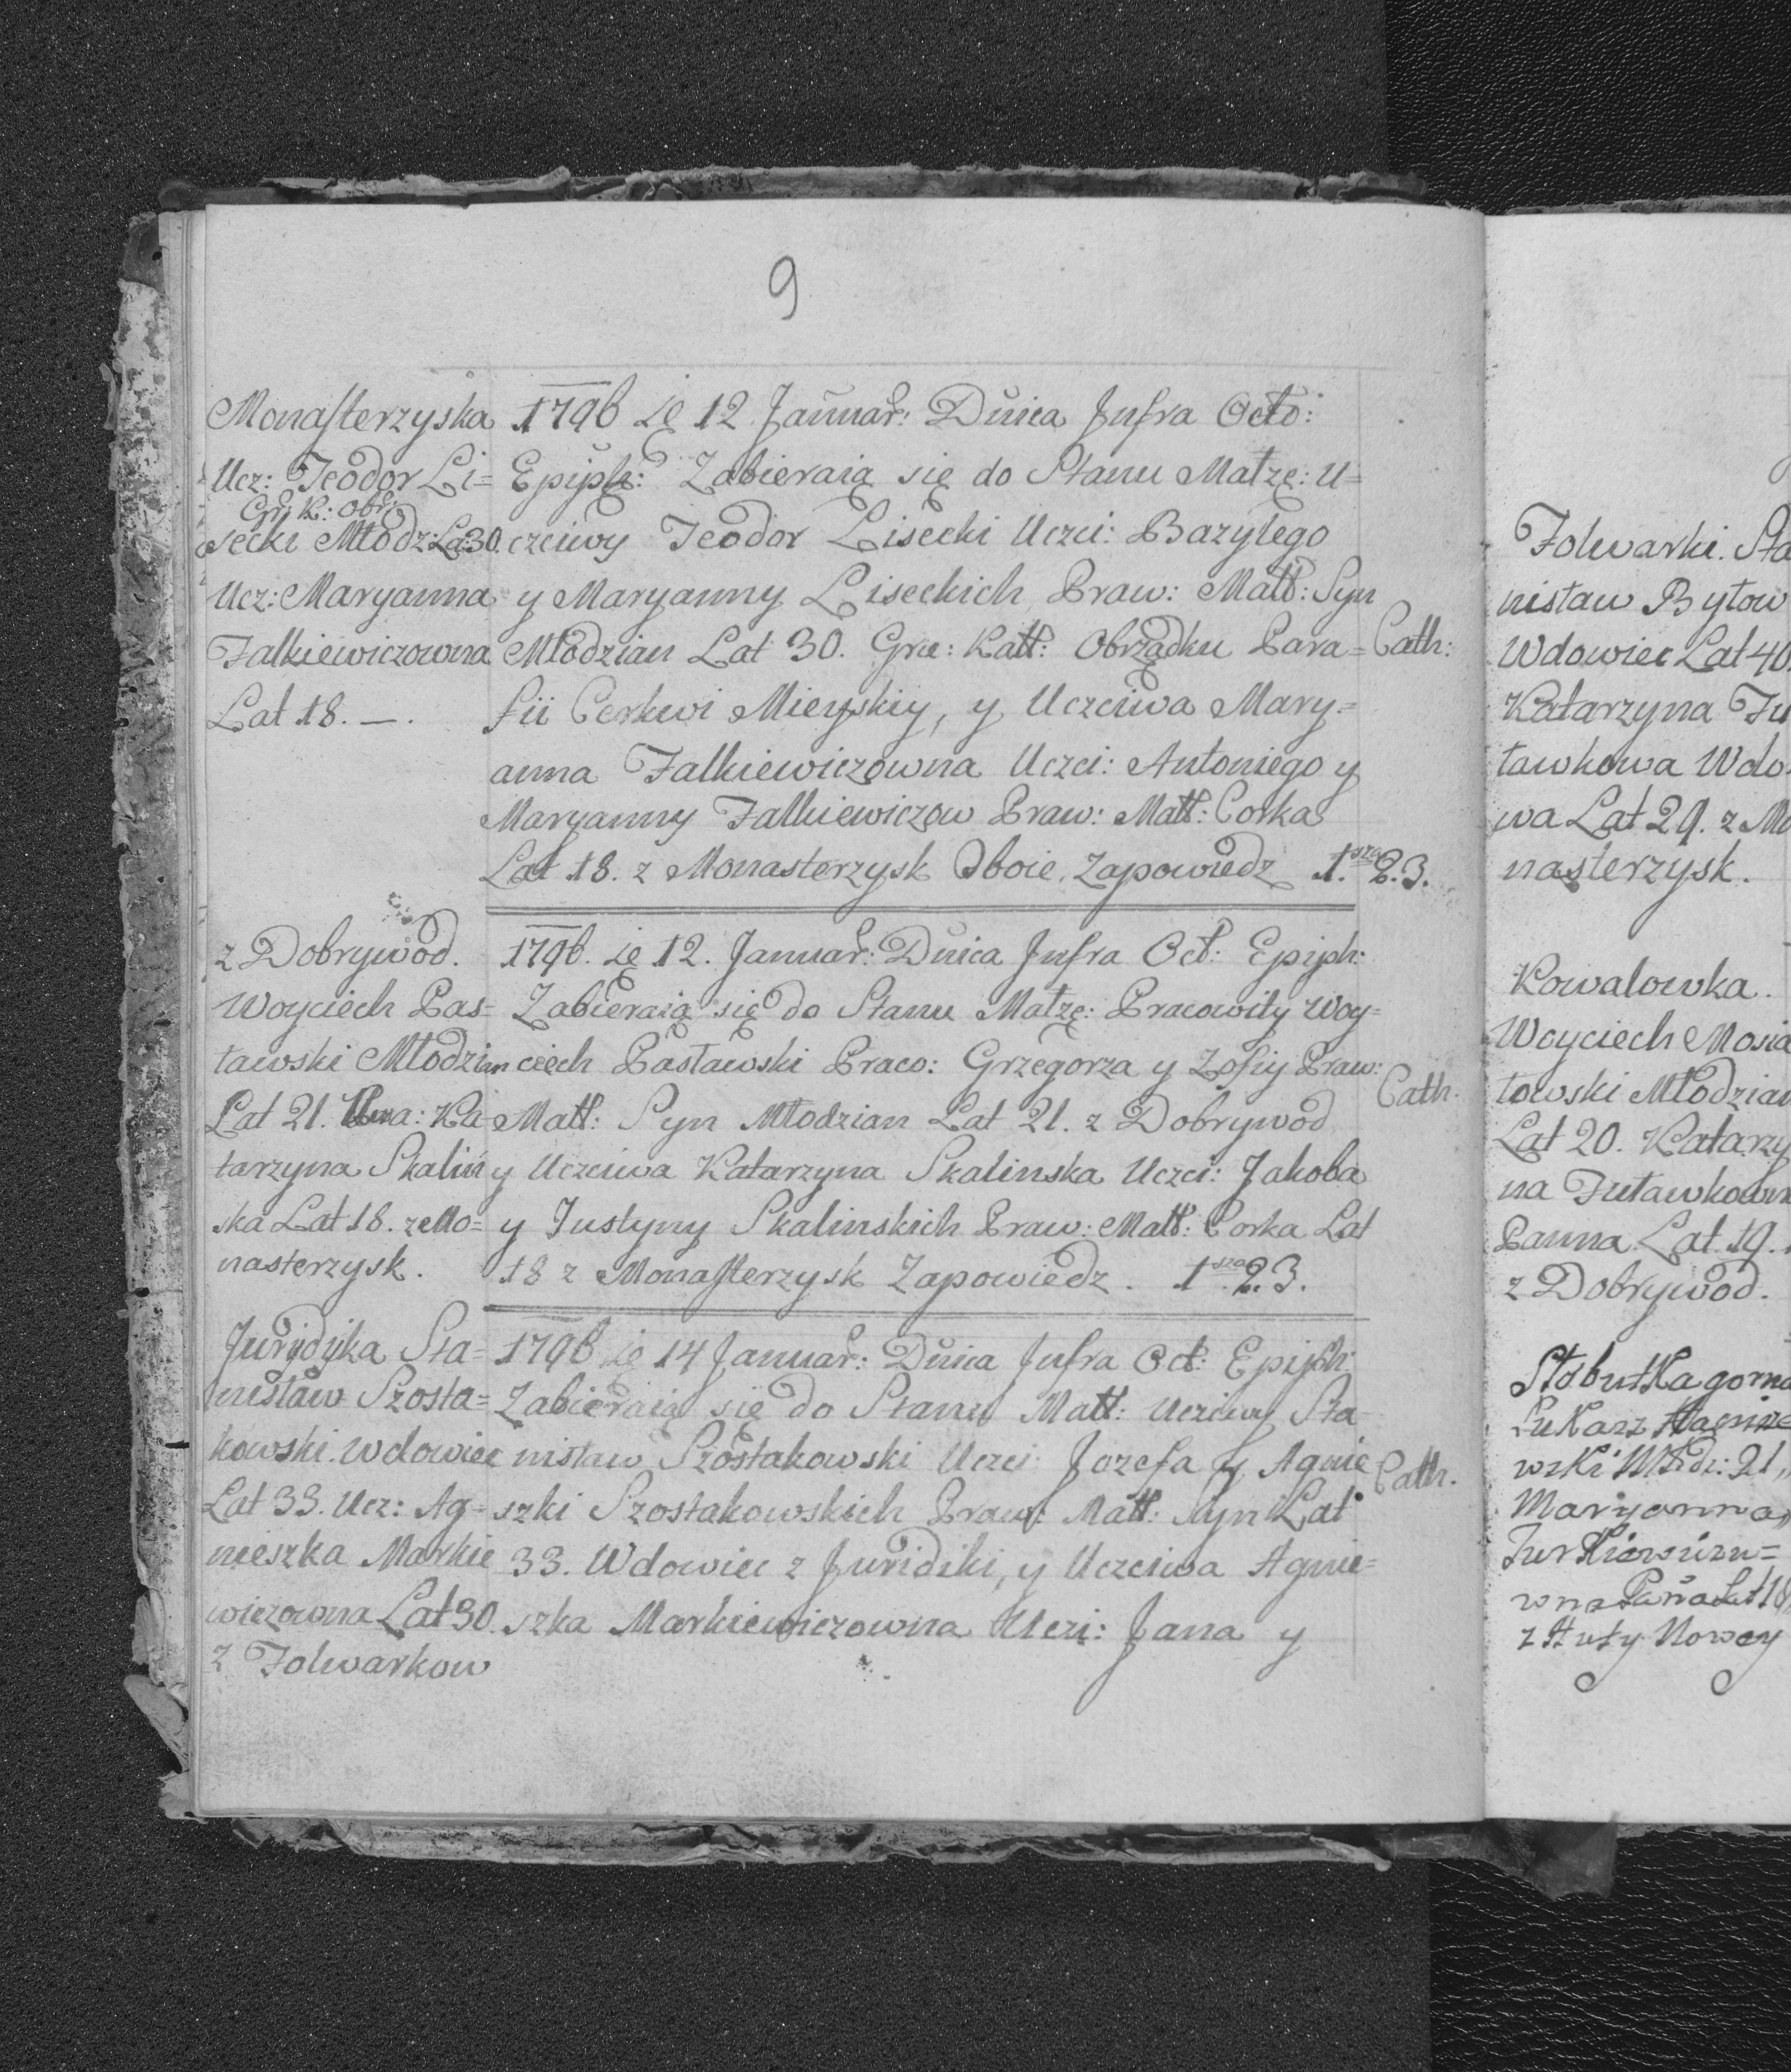 9
Monasterzyska
Ucz: Teodor Li=
Gr: K: obr:
secki Młodz: La: 30.
Ucz: Maryanna
Falkiewiczowna
Lat 18. —.
1796 ie 12 Januar: Dnica Infra Octo:
Epiph: Zabieraią się do Stanu Małżę: U=
czciwy Teodor Lisecki Uczci: Bazylego
y Maryanny Liseckich Praw: Matt: Syn
Młodzian Lat 30. Grae: Katt: Obrządku Para=
fii Cerkwi Mieyskiy, y Uczciwa Mary=
anna Falkiewiczowna Uczci: Antoniego y
Maryanny Falkiewiczow Praw: Matt: Corka
Lat 18. z Monasterzysk Oboie, Zapowiedz 1.sza 2. 3.
Cath:
z Dobrywod.
Woyciech Pas=
tawski Młodzian
Lat 21. Ka
tarzyna Skaliń
ska Lat 18. z Mo=
nasterzysk.
1796. ie 12. Januar: Dnica Infra Oct: Epiph:
Zabieraią się do Stanu Małżę: Pracowity Woy=
ciech Pastawski Praco: Grzegorza y Zofiy Praw:
Matt: Syn Młodzian Lat 21. z Dobrywod
y Uczciwa Katarzyna Skalinska Uczci: Jakoba
y Justyny Skalinskich Praw: Matt: Corka Lat
18 z Monasterzysk Zapowiedz. 1sza. 2. 3.
Cath.
Jurydyka Sta=
nisław Szosta=
kowski. Wdowiec
Lat 33. Ucz: Ag=
nieszka Markie
wiczowna Lat 30.
z Folwarkow
1796 ie 14 Januar: Dnica Infra Oct: Epiph:
Zabieraią się do Stanu Matt: Uczciwy Sta=
nisław Szostakowski Uczci: Jozefa y Agnie
szki Szostakowskich Praw: Matt: Syn Lat
33. Wdowiec z Juridiki, y Uczciwa Agnie=
szka Markiewiczowna Uczi: Jana y
Cath.
Folwarki. Sta
nisław Bytow
Wdowiec Lat 40
Katarzyna Ju
ławkowa Wdo
wa Lat 29. z Mo
nasterzysk.
Kowalowka.
Woyciech Mosia
towski Młodzian
Lat 20. Katarzy
na Juławkown
Panna Lat. 19.
z Dobrywod.
Słobutka gorna
Łukasz
wski Młdz: 21,
Maryanna
Jurkiewiczu=
wna Panna Lat 18
z Huty Nowey